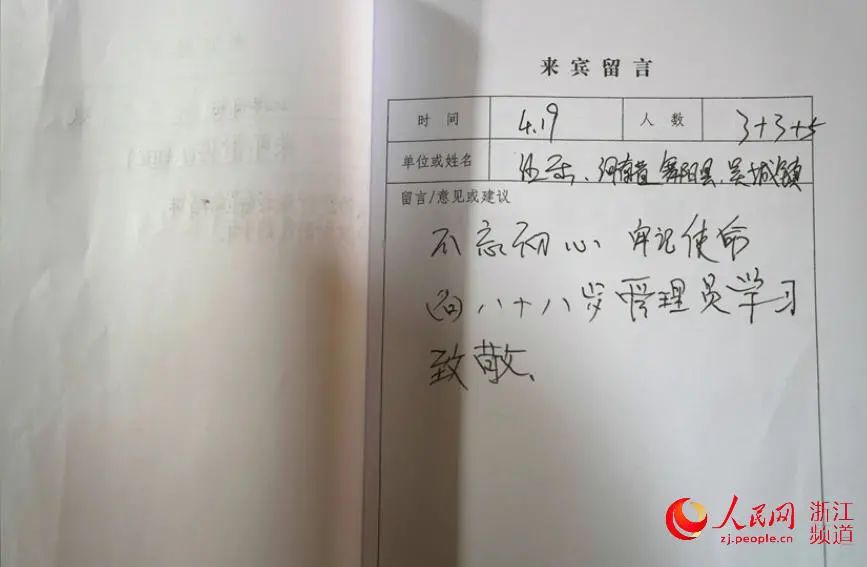 来宾留言
时间 4.19 人数 3+3+5
单位或姓名 河南省舞阳县、吴城镇
留言/意见或建议
不忘初心 牢记使命
向八十八岁管理员学习
致敬、
人民网 浙江频道
zj.people.cn